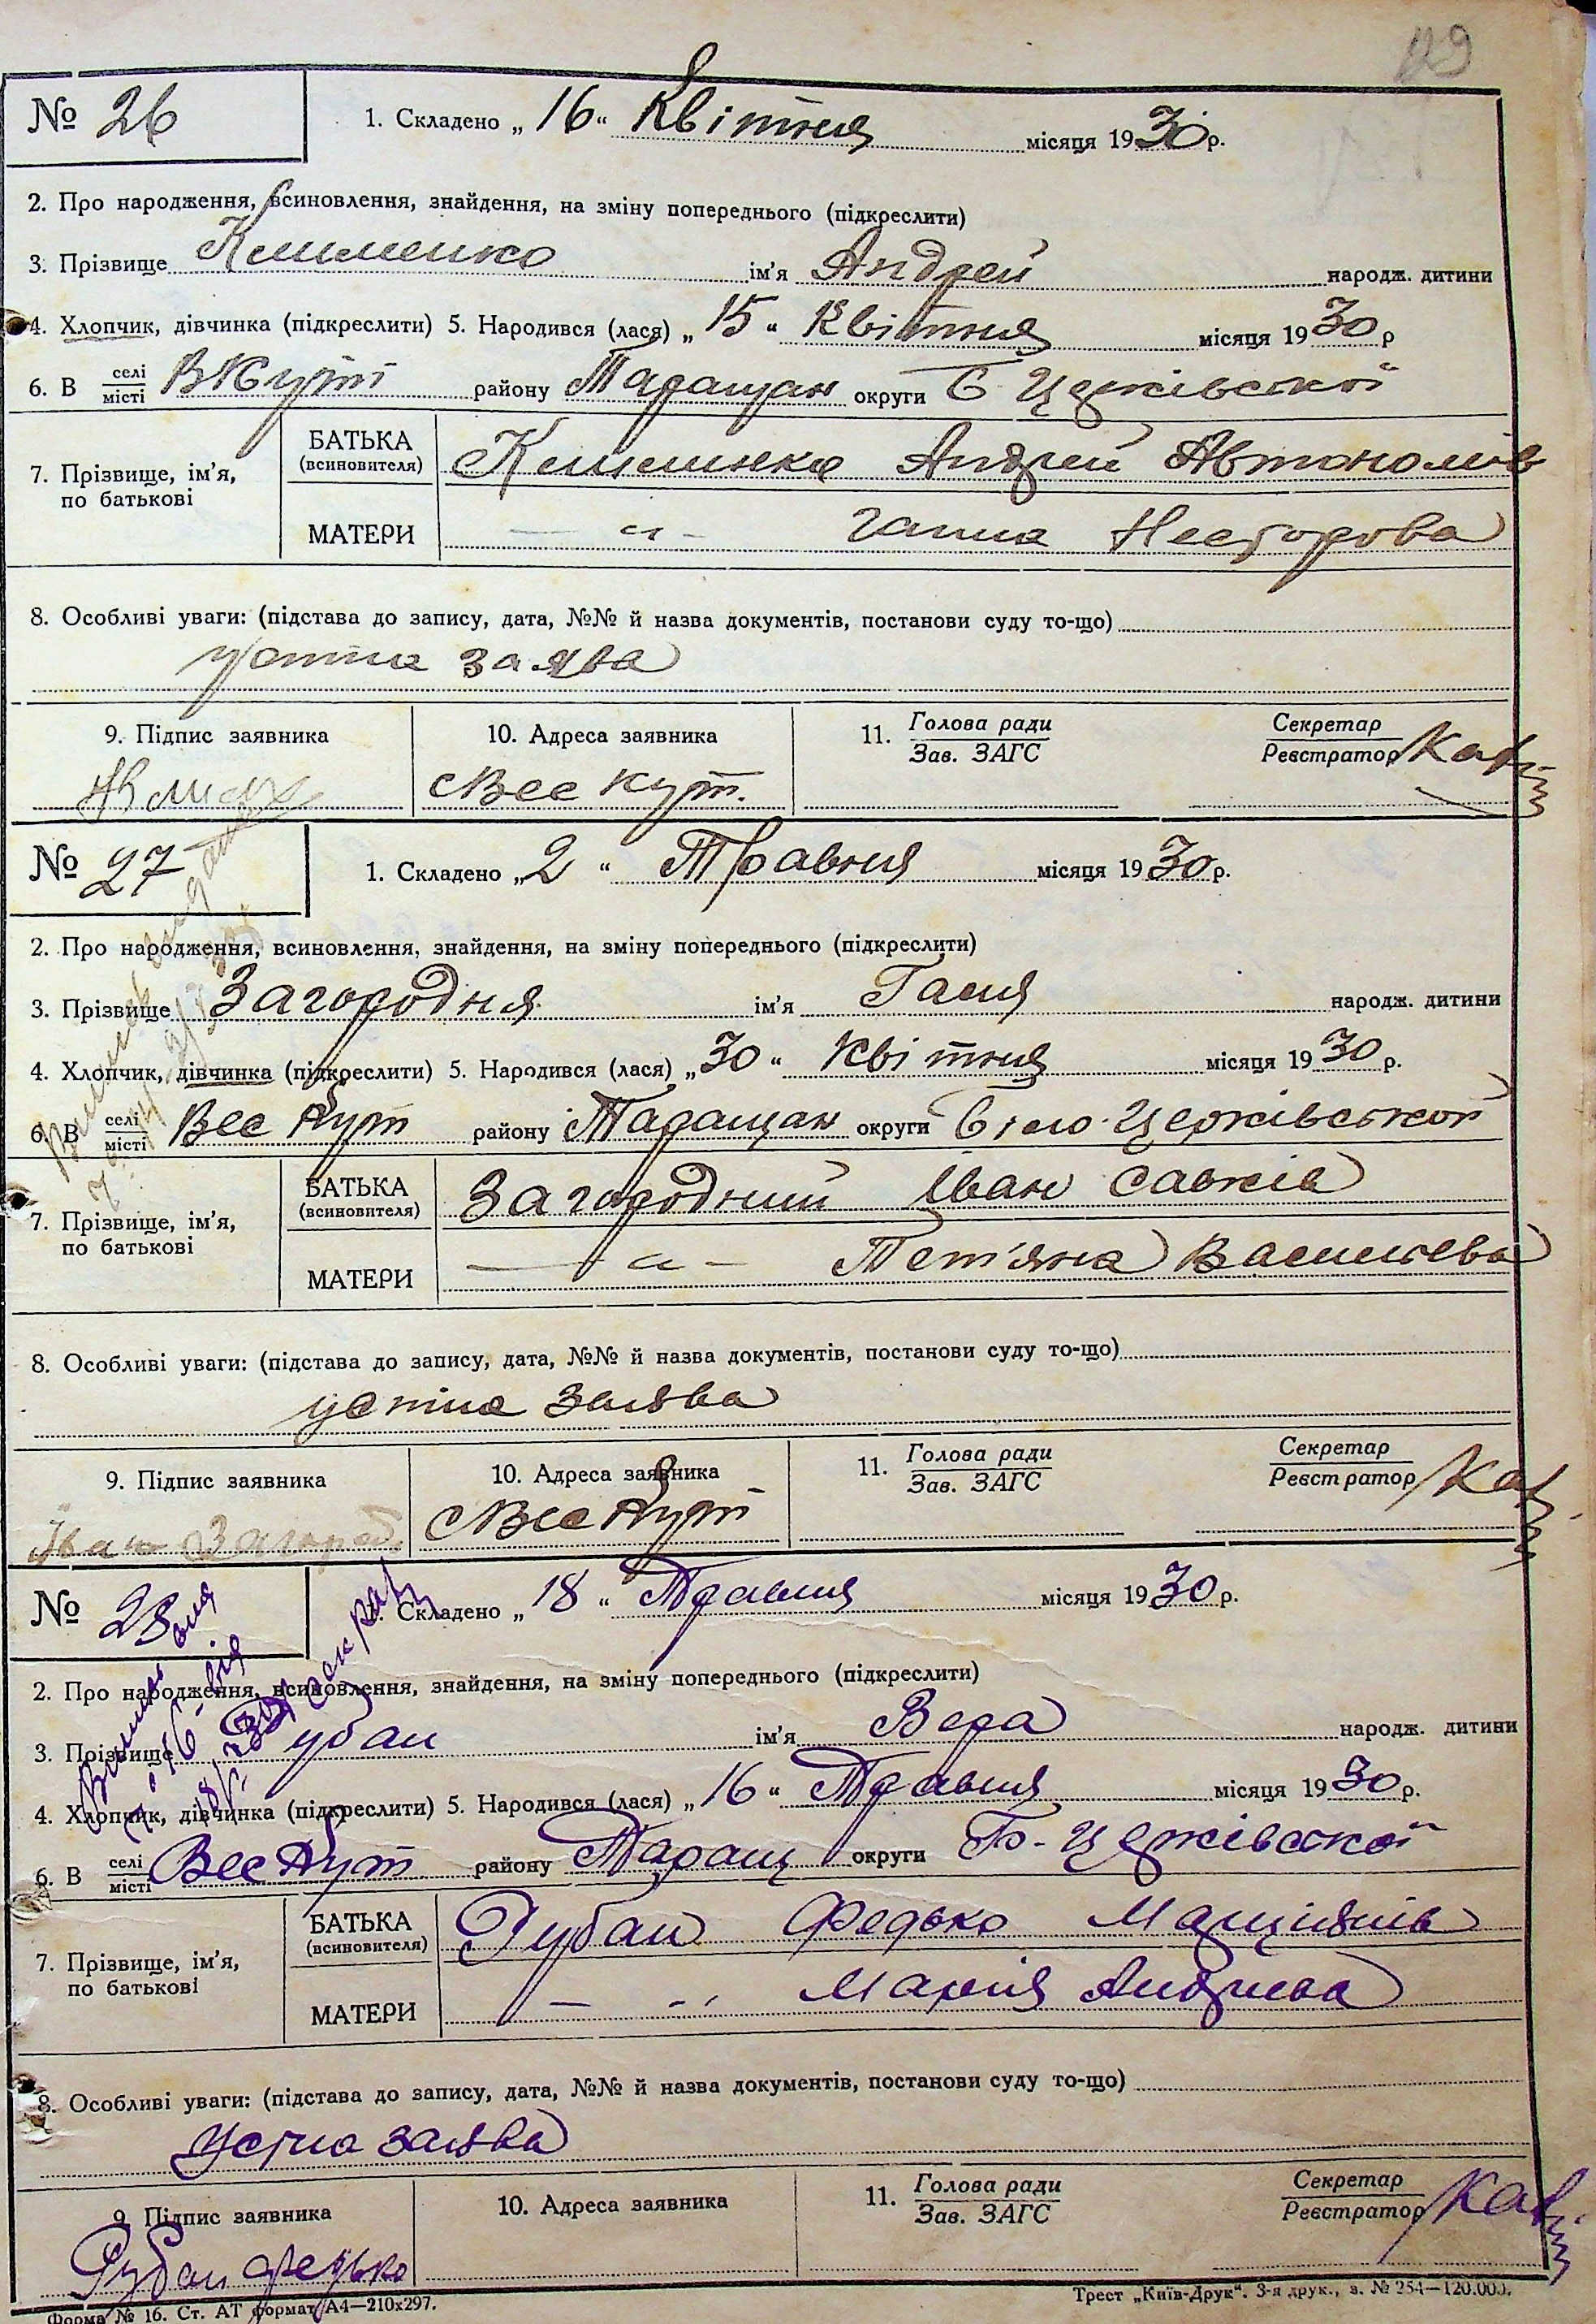 № 26
1. Складено „16“ Квітня місяця 1930 р.
2. Про народження, всиновлення, знайдення, на зміну попереднього (підкреслити)
3. Прізвище Клименко ім'я Андрей народж. дитини
4. Хлопчик, дівчинка (підкреслити) 5. Народився (лася) „15“ Квітня місяця 1930 р
6. В селі/місті ВКут району Таращан округи Б Церківської
7. Прізвище, ім'я, по батькові
БАТЬКА (всиновителя) Клименко Андрей Автономів
МАТЕРИ — „ — Ганна Несторова
8. Особливі уваги: (підстава до запису, дата, №№ й назва документів, постанови суду то-що)
устна заява
9. Підпис заявника
10. Адреса заявника
11. Голова ради/Зав. ЗАГС
Секретар/Реєстратор
с Вес Кут.
№ 27
1. Складено „2“ Травня місяця 1930 р.
2. Про народження, всиновлення, знайдення, на зміну попереднього (підкреслити)
3. Прізвище Загородня ім'я Гася народж. дитини
4. Хлопчик, дівчинка (підкреслити) 5. Народився (лася) „30“ Квітня місяця 1930 р.
6. В селі/місті Вес Кут району Таращан округи Біло-Церківської
7. Прізвище, ім'я, по батькові
БАТЬКА (всиновителя) Загородний Іван Савків
МАТЕРИ — „ — Тет'яна Васильева
8. Особливі уваги: (підстава до запису, дата, №№ й назва документів, постанови суду то-що)
устна заява
9. Підпис заявника
10. Адреса заявника
11. Голова ради/Зав. ЗАГС
Секретар/Реєстратор
Іван Загород.
с Вес Кут
№ 28
1. Складено „18“ Травня місяця 1930 р.
2. Про народження, всиновлення, знайдення, на зміну попереднього (підкреслити)
3. Прізвище Рубан ім'я Вера народж. дитини
4. Хлопчик, дівчинка (підкреслити) 5. Народився (лася) „16“ Травня місяця 1930 р.
6. В селі/місті Вес Кут району Таращ округи Б-Церківської
7. Прізвище, ім'я, по батькові
БАТЬКА (всиновителя) Рубан Федько
МАТЕРИ — „ Марія Андрієва
8. Особливі уваги: (підстава до запису, дата, №№ й назва документів, постанови суду то-що)
Устна заява
9. Підпис заявника
10. Адреса заявника
11. Голова ради/Зав. ЗАГС
Секретар/Реєстратор
Рубан Федько
Форма № 16. Ст. АТ формат А4—210х297.
Трест „Київ-Друк“. 3-я друк., з. № 254—120.000.